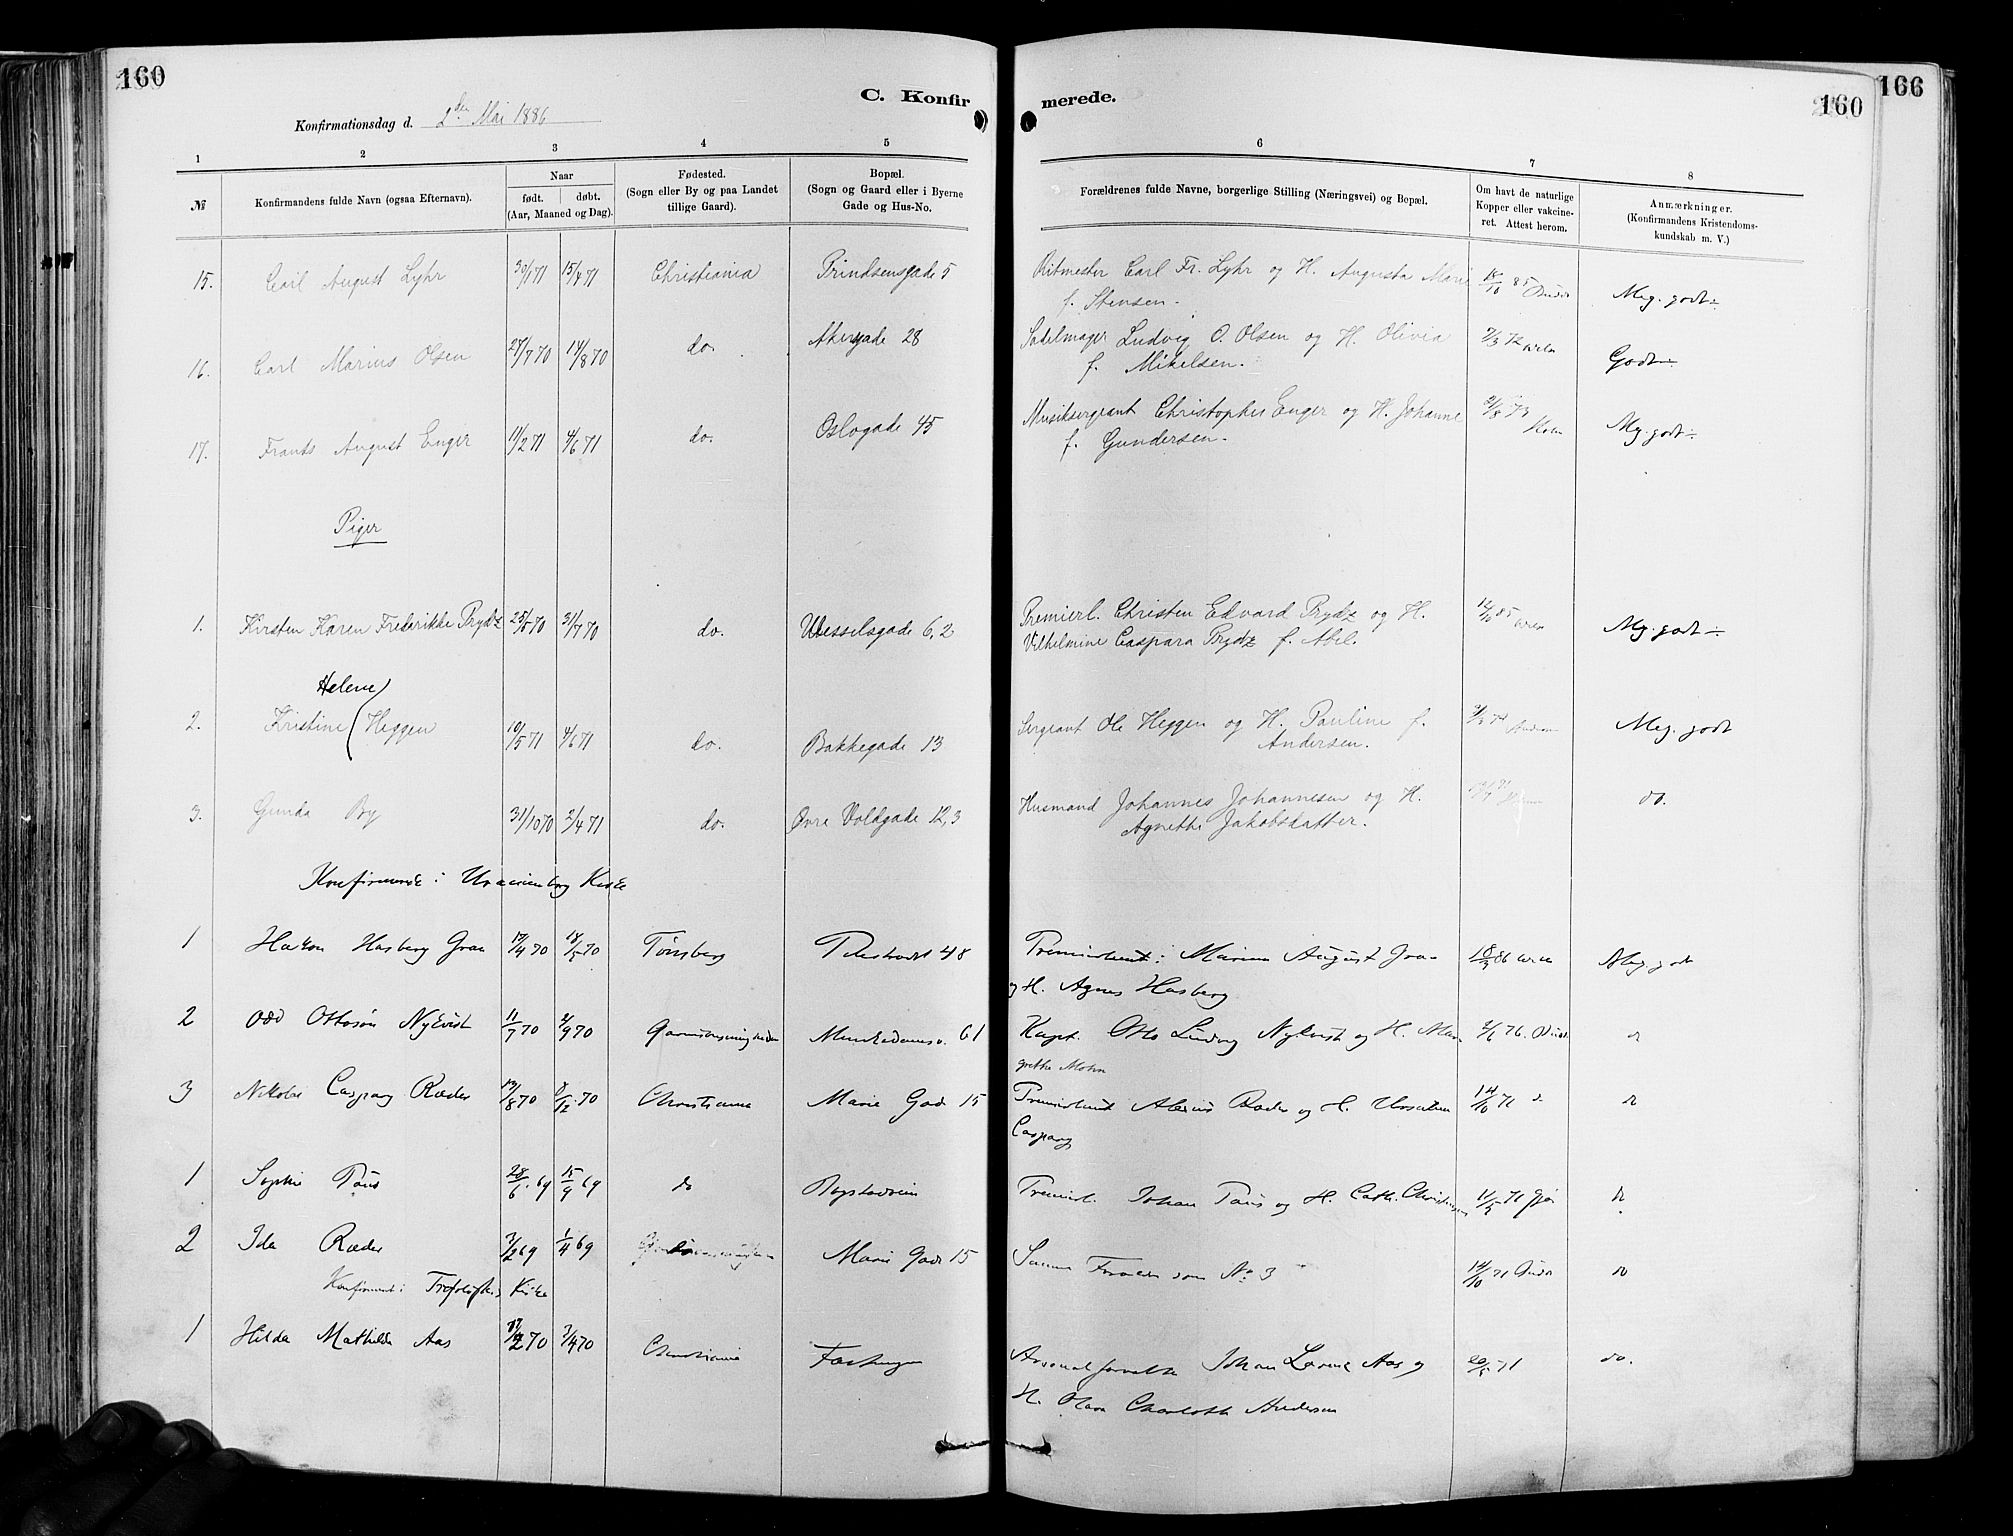 160
C. Konfir
merede.
160
166
Konfirmationsdag d. 2den Mai 1886
1 2 3 4 5 6 7 8
№ Konfirmandens fulde Navn (ogsaa Efternavn).
Naar
født. døbt.
(Aar, Maaned og Dag).
Fødested.
(Sogn eller By og paa Landet
tillige Gaard).
Bopæl.
(Sogn og Gaard eller i Byerne
Gade og Hus-No.
Forældrenes fulde Navne, borgerlige Stilling (Næringsvei) og Bopæl.
Om havt de naturlige
Kopper eller vakcine-
ret. Attest herom.
Anmærkninger.
(Konfirmandens Kristendoms-
kundskab m. V.)
15. Carl August Lyhr 30/1 71 15/4 71 Christiania Prindsensgade 5 Ritmester Carl Fr. Lyhr og H. Augusta Marie 18/10 85 Meg. godt
f. Stensen.
16. Carl Marius Olsen 27/7 70 14/8 70 do. Akersgade 28 Sadelmager Ludvig O. Olsen og H. Olivia 7/3 72 Godt
f. Mikelsen.
17. Frants August Enger 11/2 71 4/6 71 do. Oslogade 45 Musiksergeant Christopher Enger og H. Johanne 2/8 73 Mg. godt
f. Gundersen.
Piger
1. Kirsten Karen Frederikke Prydz do. Wesselsgade 6,2 Premierl. Christen Edvard Prydz og H. Meg. godt
Vilhelmine Caspara Prydz f. Abel.
Helene
2. Kristine Heggen 10/5 71 4/6 71 do. Bakkegade 13 Sergeant Ole Heggen og H. Pauline f. Meg. godt
Andersen.
3. Gunda By 31/10 70 2/4 71 do. Øvre Voldgade 12,3 Husmand Johannes Johannesen og H. do.
Agnethe Jakobsdatter.
Konfirmerede i Uranienborg Kirke
1 Hakon Hasberg Graa 17/4 70 18/5 70 Tønsberg Pilestrædet 48 Marius August Graa 86 Meg. godt
og H. Agnes Hasberg
2 Odd Ottosøn Nykvist 11/7 70 4/9 70 Munkedamsv. 61 Kapt. Otto Ludvig Nykvist og H. Mar- 76. do
grethe Mohn
3 Nikolai Caspary Ræder 19/8 70 8/12 70 Christiania Marie Gade 15 Premierlieut Ræder og H. 14/10 71 do
Caspary
1 Sophie Paus 28/6 69 15/9 69 do Bogstadveien Premierl. Johan Paus og H. Cath. Christensen 11/5 71 do
2 Ida Ræder 7/2 69 1/4 69 Marie Gade 15 Samme Forældre som No 3 14/10 71 do
Konfirmeret i Trefoldigheds Kirke
1 Hilda Mathilde Aas 7/4 70 Christiania Fæstningen Arsenalforvalter Johan Aas og 71 do.
H. Charlotte Andersen